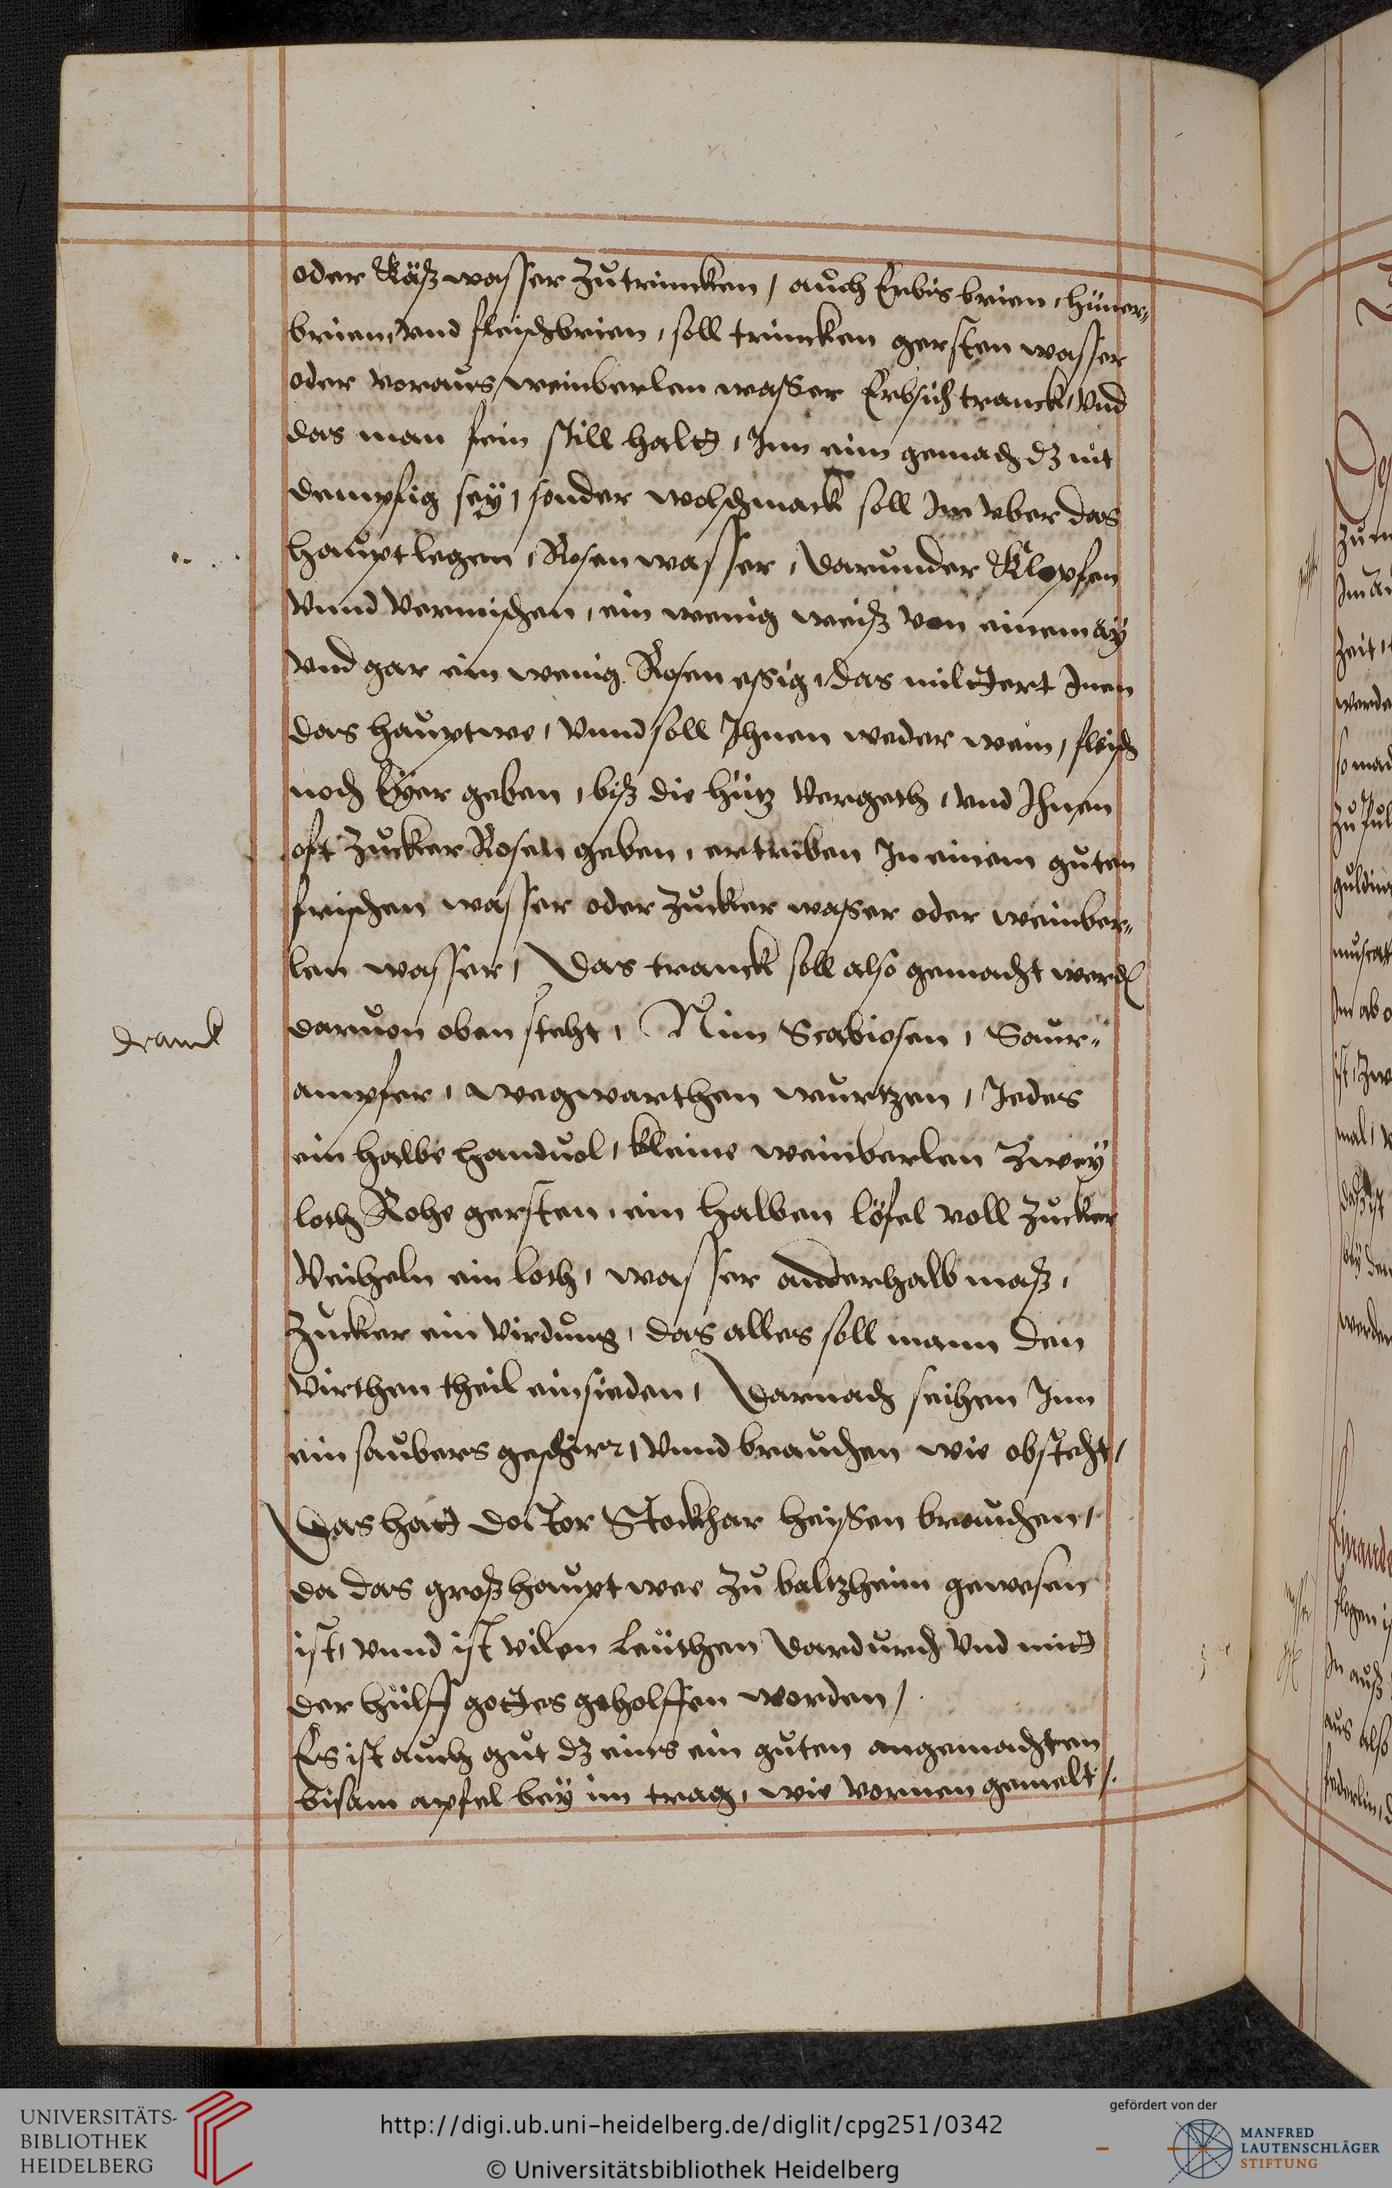 oder Käß wasser zu trincken / auch Erbis brien, hüner-
brüen, vnd fleischbrien, soll trincken gersten wasser
oder voraus weinberlen wasser Erbsich tranck, Vnd
das man fein still halt, Inn eim gemach dz nit
dempfig seÿ, sonder wolschmack soll Im vber das
haupt legen, Rosen wasser, darunder Klopfen
Vnnd vermischen, ein wenig weiß von einem aÿ
Vnd gar ein wenig Rosen essig, das miltert Inen
das hauptwe, Vnnd soll Ihnen weder wein, fleisch
noch Eÿer geben, biß die hütz vergeth, vnd Ihnen
oft Zucker Rosen geben, ertriben In einem guten
frischen wasser oder Zucker wasser oder weinber-
len wasser, Das tranck soll also gemacht werd
dranck
daruon oben steht, Nim Scabiosen, Saur-
ampfer, wegwarthen wurtzen, Jedes
ein halbe handuol, kleine weinberlen Zweÿ
loth Rohe gersten, ein halben löfel voll Zucker
Veiheln ein loth, wasser anderhalb maß,
Zucker ein virdung, das alles soll mann den
virthen theil einsieden, Darnach seihen Inn
ein saubers geschirr, Vnnd brauchen wie obsteht,
Das hatt doctor Stockhar heissen brauchen,
da das groß haupt wee zu baltzheim gewesen
ist, vnnd ist vilen leüthen dardurch Vnd mit
der hülff gottes geholffen worden /
Es ist auch gut dz eins ein guten angemachten
bisam apfel beÿ im trag, wie vornen gemelt /.
UNIVERSITÄTS-
BIBLIOTHEK
HEIDELBERG
http://digi.ub.uni-heidelberg.de/diglit/cpg251/0342
© Universitätsbibliothek Heidelberg
gefördert von der
MANFRED
LAUTENSCHLÄGER
STIFTUNG